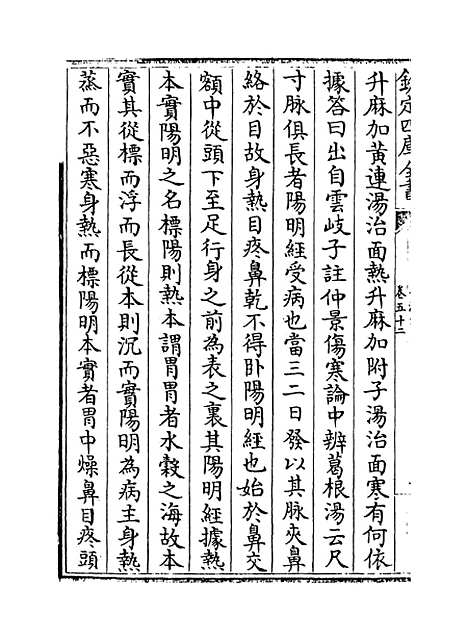 欽定四庫全書
卷五十二
升麻加黃連湯治面熱升麻加附子湯治面寒有何依
據答曰出自雲岐子註仲景傷寒論中辨葛根湯云尺
寸脉俱長者陽明經受病也當三二日發以其脉夾鼻
絡於目故身熱目疼鼻乾不得卧陽明經也始於鼻交
額中從頭下至足行身之前為表之裏其陽明經據熱
本實陽明之名標陽則熱本謂胃胃者水榖之海故本
實其從標而浮而長從本則沉而實陽明為病主身熱
蒸而不惡寒身熱而標陽明本實者胃中燥鼻目疼頭